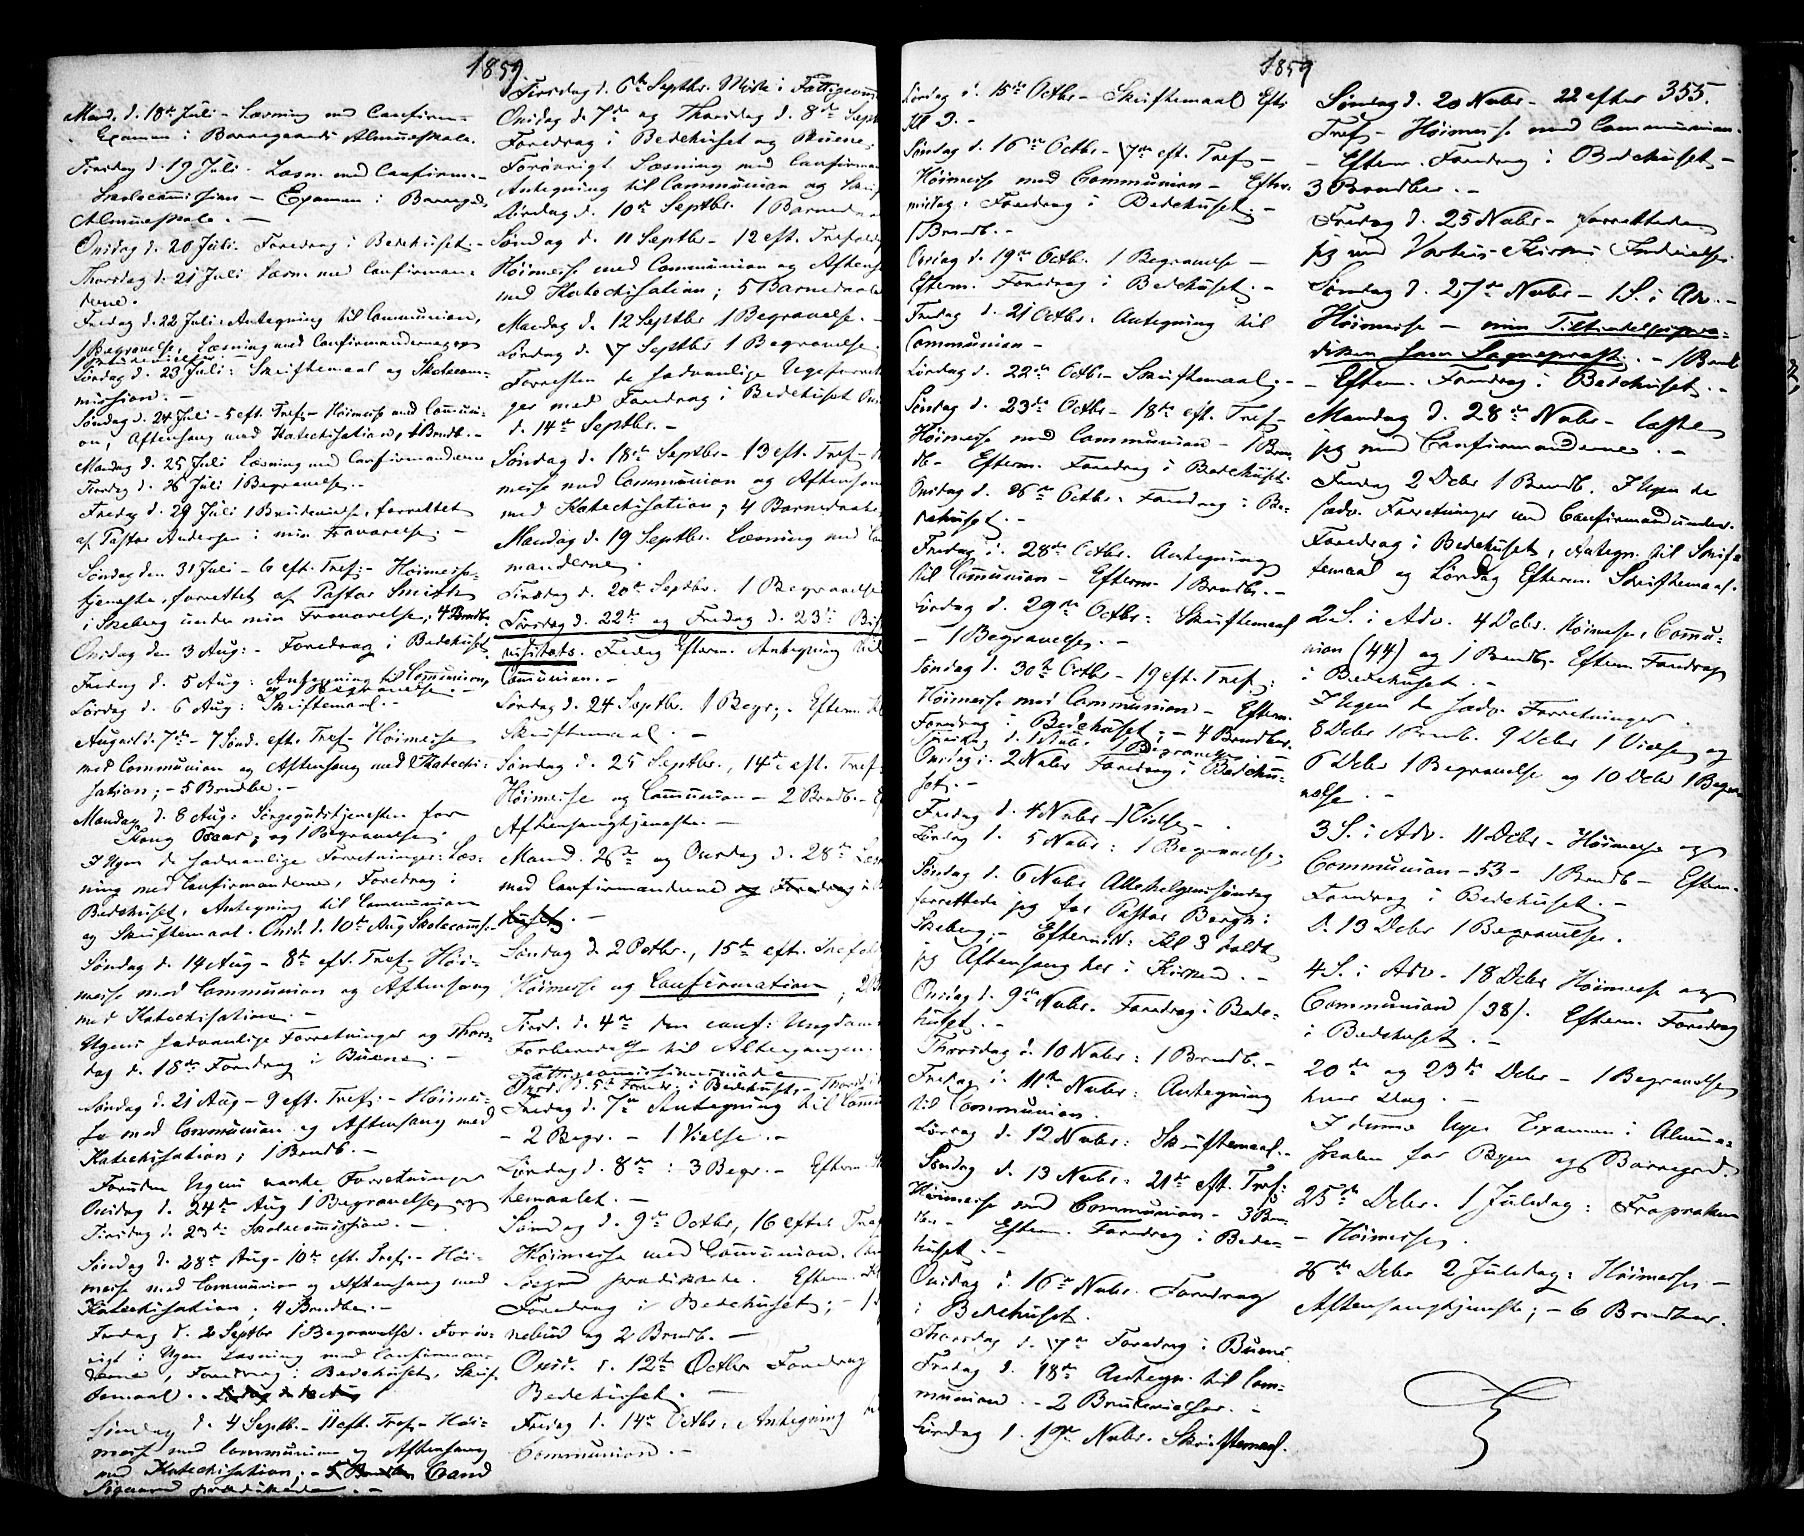 1859
Mand. d. 18de Juli - Læsning med Confirm-
Examen i Borregaards Almueskole.
Tirsdag d. 19 Juli. Læsn. med Confirm.-
Skolecommission - Examen i Borregds
Almueskole. -
Onsdag d. 20 Juli. Foredrag i Bedehuset. -
Thorsdag d. 21 Juli Læsn. med Confirman-
dene.
Fredag d. 22 Juli. Antegning til Communion,
1 Begravelse, Læsning med Confirmanderne og
1 Brudevielse
Lördag d. 23 Juli: Skriftemaal og Skolecom-
mission. -
Söndag d. 24 Juli - 5 eft. Tref. - Höimesse med Commun-
on, Aftensang med Katechisation, 1 Brndb. -
Mandag d. 25 Juli Læsning med Confirmanderne
Tirsdag d. 26 Juli 1 Begravelse. -
Fredag d. 29 Juli 1 Brudevielse, forrettet
af Pastor Andersen i min Fraværelse. -
Söndag den 31 Juli - 6 eft. Tref. - Höimesse-
tjeneste, forrettet af Pastor Smith
i Skeberg under min Fraværelse; 4 Brndb.
Onsdag den 3 Aug: - Foredrag i Bedehuset.
Fredag d. 5 Aug: Antegning til Communion,
og 1 Begravelse. -
Lördag d. 6 Aug: Skriftemaal. -
August d. 7de - 7 Sönd. eft. Tref. - Höimesse
med Communion og Aftensang med Katechi-
sation; - 5 Brndbe. -
Mandag d. 8 Aug: Sörgegudstjenesten for
Kong Oscar; og 1 Begravelse.
I Ugen de sædvanlige Forretninger: Læs-
ning med Confirmanderne, Foredrag i
Bedehuset, Antegning til Communion
og Skriftemaal. Onsd. d. 10de Aug Skolecomms. -
Söndag d. 14 Aug - 8de eft. Tref. - Höi-
messe med Communion og Aftensang
med Katechisation. -
Ugens sædvanlige Forretninger og Thors-
dag d. 18de Foredrag i Buene. -
Söndag d. 21 Aug - 9 eft. Tref. - Höimes-
se med Communion og Aftensang med
Katechisation; 1 Brndb. -
Foruden Ugens vante Forretninger
Onsdag d. 24de Aug 1 Begravelse, og
Tirsdag d. 23de Skolecommission. -
Söndag d. 28de Aug - 10de eft. Tref. - Höi-
messe med Communion og Aftensang med
Katechisation; 4 Brndbe. -
Fredag d. 2 Septbr 1 Begravelse. Foröv-
rigt i Ugen Læsning med Confirman-
derne, Foredrag i Bedehuset, Skrif-
temaal. -
Söndag d. 4 Septb. - 11 eft. Tref. - Höi-
messe med Communion og Aftensang
med Katechisation; - 5 Brndbe. Cand
Sigaard prædikede. -
Tirsdag d. 6te Septbr. Möde i Fattigcomm
Onsdag d. 7de og Thorsdag d. 8de Sept
Foredrag i Bedehuset og Buene.
Forövrigt Læsning med Confirman
Antegning til Communion og Skrif
Lördag d. 10de Septbr. 1 Barneda
Söndag d. 11 Septbr - 12 eft. Trefold
Höimesse med Communion og Aftens
med Katechisation; 5 Barnedaab
Mandag d. 12 Septbr 1 Begravelse. -
Lördag d. 17 Septbr 1 Begravelse.
Forresten de sædvanlige Ugeforret
ger med Foredrag i Bedehuset On
d. 14de Septbr. -
Söndag d. 18de Septbr - 13 eft. Tref. - H
messe med Communion og Aftensan
med Katechisation; 4 Barnedaab
Mandag d. 19 Septbr. Læsning med Con
manderne.
Tirsdag d. 20de Septbr. 1 Begravelse
Torsdag d. 22de og Fredag d. 23de Bis
visitats. Fredag Efterm. Antegning til
Communion. -
Lördag d. 24 Septbr. 1 Begr.; Efterm. Kl
Skriftemaal. -
Söndag d. 25 Septbr., 14de eft. Tref.
Höimesse og Communion - 2 Brndb. - Ef
Aftensangtjeneste. -
Mand. 26de og Onsdag d. 28de Læs
med Confirmanderne og Foredrag i Be
huset. -
Söndag d. 2 Octbr., 15de eft. Trefol
Höimesse og Confirmation; 2 B
Tirsd. d. 4de den conf: Ungdoms
Forberedelse til Altergangen.
Fattigcommissionsmöde
Onsd. d. 5te Foredr. i Bedehuset. - Thorsd. d.
Fredag d. 7de Antegning til Commu
- 2 Begr. - 1 Vielse. -
Lördag d. 8de: 3 Begr. - Efterm. Sk
temaalet. -
Söndag d. 9de Octbr, 16 efter Tref
Höimesse med Communion. Can
Sogn prædikede. Efterm. Kl
Foredrag i Bedehuset; - 1
nebud og 2 Brndb. -
Onsd. d. 12te Octbr Foredrag
Bedehuset. -
Fredag d. 14de Octbr, Antegning
Communion. -
1859
355.
Lördag d. 15de Octbr - Skriftemaal Eft.
Kl 3. -
Söndag d. 16de Octbr. - 17de eft. Tref. -
Höimesse med Communion - Efter-
middag: Foredrag i Bedehuset. -
1 Brndb. -
Onsdag d. 19de Octb. 1 Begravelse -
Efterm. Foredrag i Bedehuset. -
Fredag d. 21 Octbr. Antegning til
Communion -
Lördag d. 22de Octb. - Skriftemaal. -
Söndag d. 23de Octbr - 18de eft. Tref. -
Höimesse med Communion - 1 Brn-
db. - Efterm. Foredrag i Bedehuset.
Onsdag d. 26de Octbr. Foredrag i Be-
dehuset. -
Fredag d. 28de Octbr. Antegning
til Communion - Efterm. 1 Brndb. -
Lördag d. 29de Octbr. Skriftemaal
- 1 Begravelse. -
Söndag d. 30te Octbr - 19 eft. Tref.:
Höimesse med Communion - Efterm.
Foredrag i Bedehuset; - 4 Brndber.
Tirsdag d. 1 Nvbr. 1 Begravelse
Onsdag d. 2 Nvbr Foredrag i Bedehu-
set. -
Fredag d. 4 Nvbr - 1 Vielse -
Lördag d. 5 Nvbr: 1 Begravelse;
Söndag d. 6 Nvbr Allehelgenssöndag
forrettede jeg for Pastor Bergh i
Skeberg; - Eftermid: Kl 3 holdt
jeg Aftensang her i Kirken. -
Onsdag d. 9de Nvbr. Foredrag i Bede-
huset. -
Thorsdag d. 10 Nvbr: 1 Brndb. -
Fredag d. 11te Nvbr: Antegning
til Communion.
Lördag d. 12 Nvbr: Skriftemaal. -
Söndag d. 13 Nvbr: 21de eft. Tref:
Höimesse med Communion - 3 Brn-
dbr - Efterm. Foredrag i Bede-
huset. -
Onsdag d. 16de Nvbr. Foredrag
i Bedehuset.
Thorsdag d. 17de Foredrag i Buene.
Fredag d. 18de Antegn. til Com-
munion. - 2 Brudevielser. -
Lördag d. 19de Nvbr. Skriftemaal.
Söndag d. 20 Nvbr - 22 efter
Tref. - Höimesse med Communion.
- Efterm. Foredrag i Bedehuset -
3 Brndber. -
Fredag d. 25 Nvbr - forrettede
jeg ved Varteig-Kirkes Indvielse.
Söndag d. 27de Nvbr - 1 S. i Adv. -
Höimesse - min Tiltrædelsespræ-
diken som Sognepræst. - 1 Brndb
- Efterm. Foredrag i Bedehuset. -
Mandag d. 28de Nvbr - læste
jeg med Confirmanderne. -
Fredag 2 Dcbr 1 Brndb. I Ugen de
sædv. Forretninger med Confirmandunder.
Foredrag i Bedehuset, Antegn. til Skrif-
temaal og Lördag Efterm. Skriftemaal.
2 S. i Adv. 4 Dcbr. Höimesse, Commu-
nion (44) og 1 Brndb. Efterm. Foredrag
i Bedehuset. -
I Ugen de sædv. Forretninger.
8 Dcbr 1 Brndb. 9 Dcbr 1 Vielse og
6 Dcbr 1 Begravelse og 10 Dcbr 1 Begra-
velse. -
3 S. i Adv. 11 Dcbr - Höimesse og
Communion - 53 - 1 Brndb - Efterm.
Foredrag i Bedehuset. -
D. 13 Dcbr 1 Begravelse.
4 S. i Adv. 18 Dcbr Höimesse og
Communion (38). Efterm. Foredrag
i Bedehuset. -
20de og 23de Dcbr - 1 Begravelse
hver Dag. -
I denne Uge Examen i Almue-
skolen for Byen og Borregrd.
25de Dcbr. 1 Juledag: Froprædken
- Höimesse.
26de Dcbr 2 Juledag: Höimesse -
Aftensangtjeneste; - 6 Brndber.